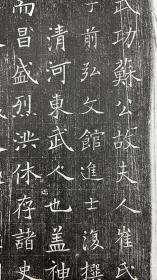 武功蘇公故夫人崔氏
子前弘文館進士復撰
清河東武人也盖神
而昌盛烈洪休存諸史